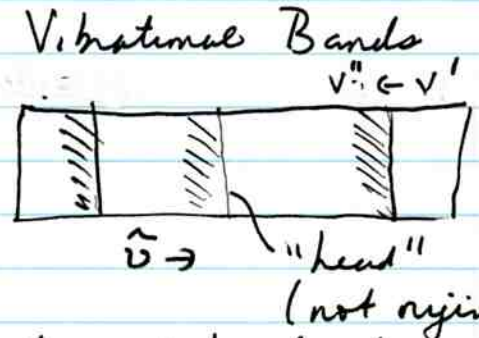 Vibrational Bands
v" ← v'
ν̃ →
"head"
(not